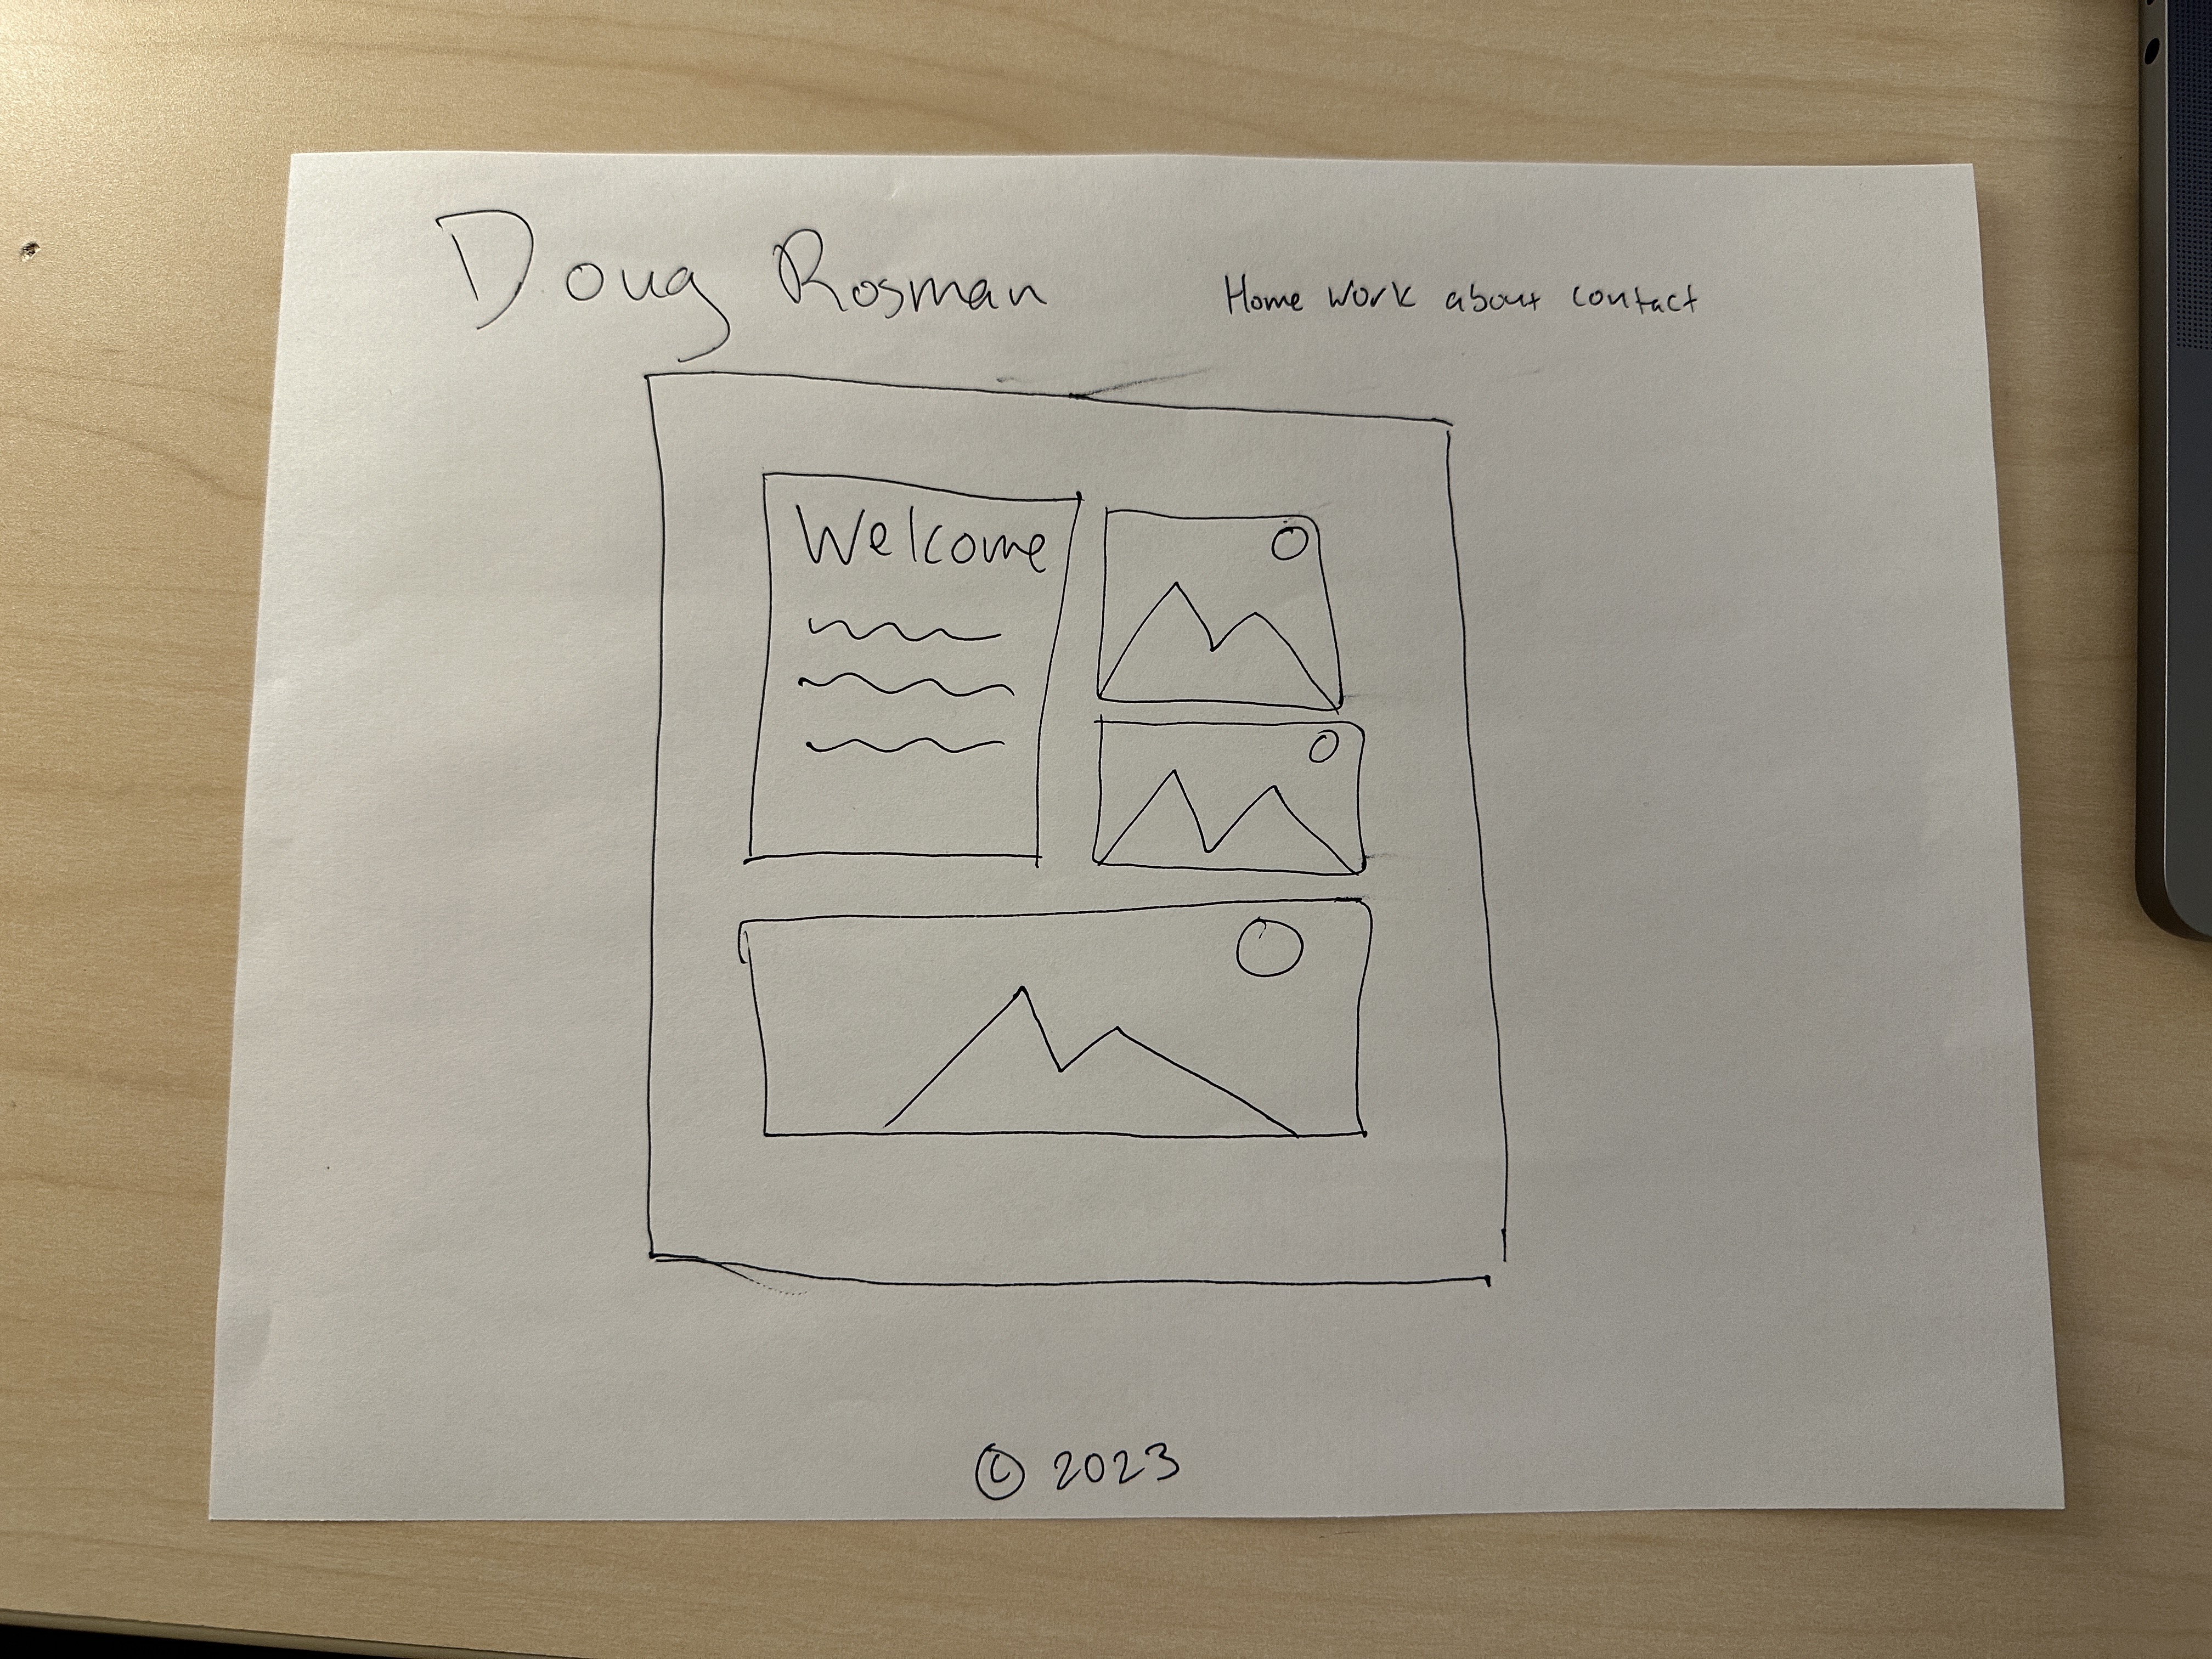 Doug Rosman
Home Work about contact
Welcome
© 2023